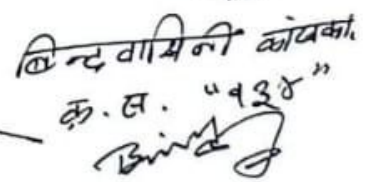 बिन्दवासिनी कायका.
क्र. स. "१३४"